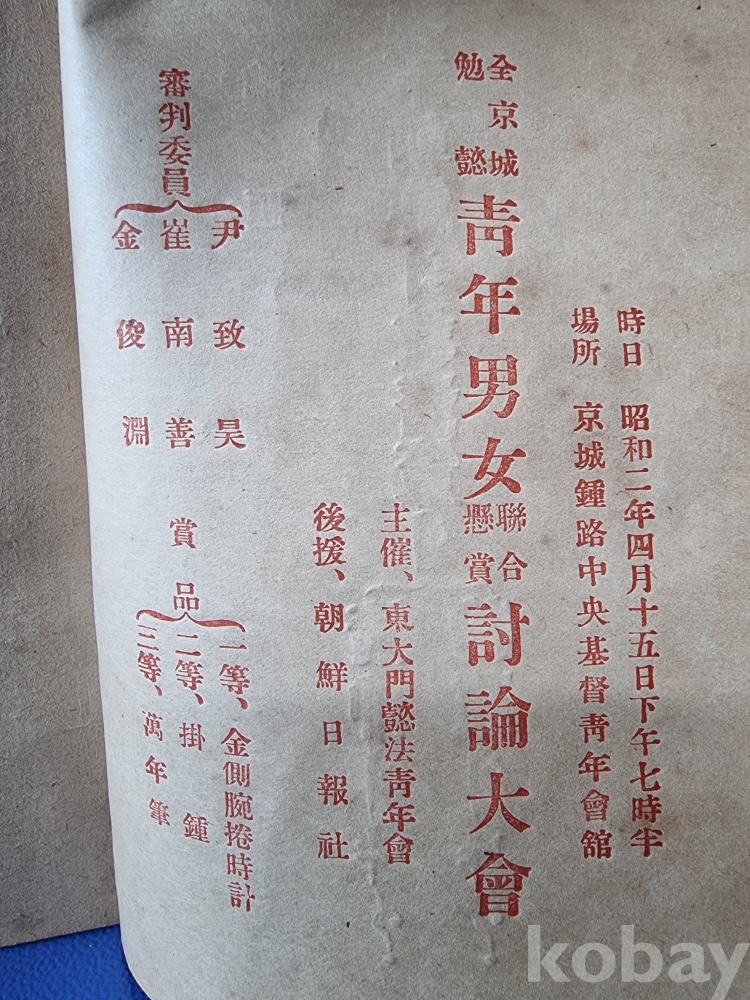 時日 昭和二年四月十五日下午七時半
場所 京城鍾路中央基督靑年會舘
全京城
勉懿
靑年男女
聯合
懸賞
討論大會
主催、東大門懿法靑年會
後援、朝鮮日報社
審判委員
尹致昊
崔南善
金俊淵
賞品
一等、金側腕捲時計
二等、掛鍾
三等、萬年筆
kobay